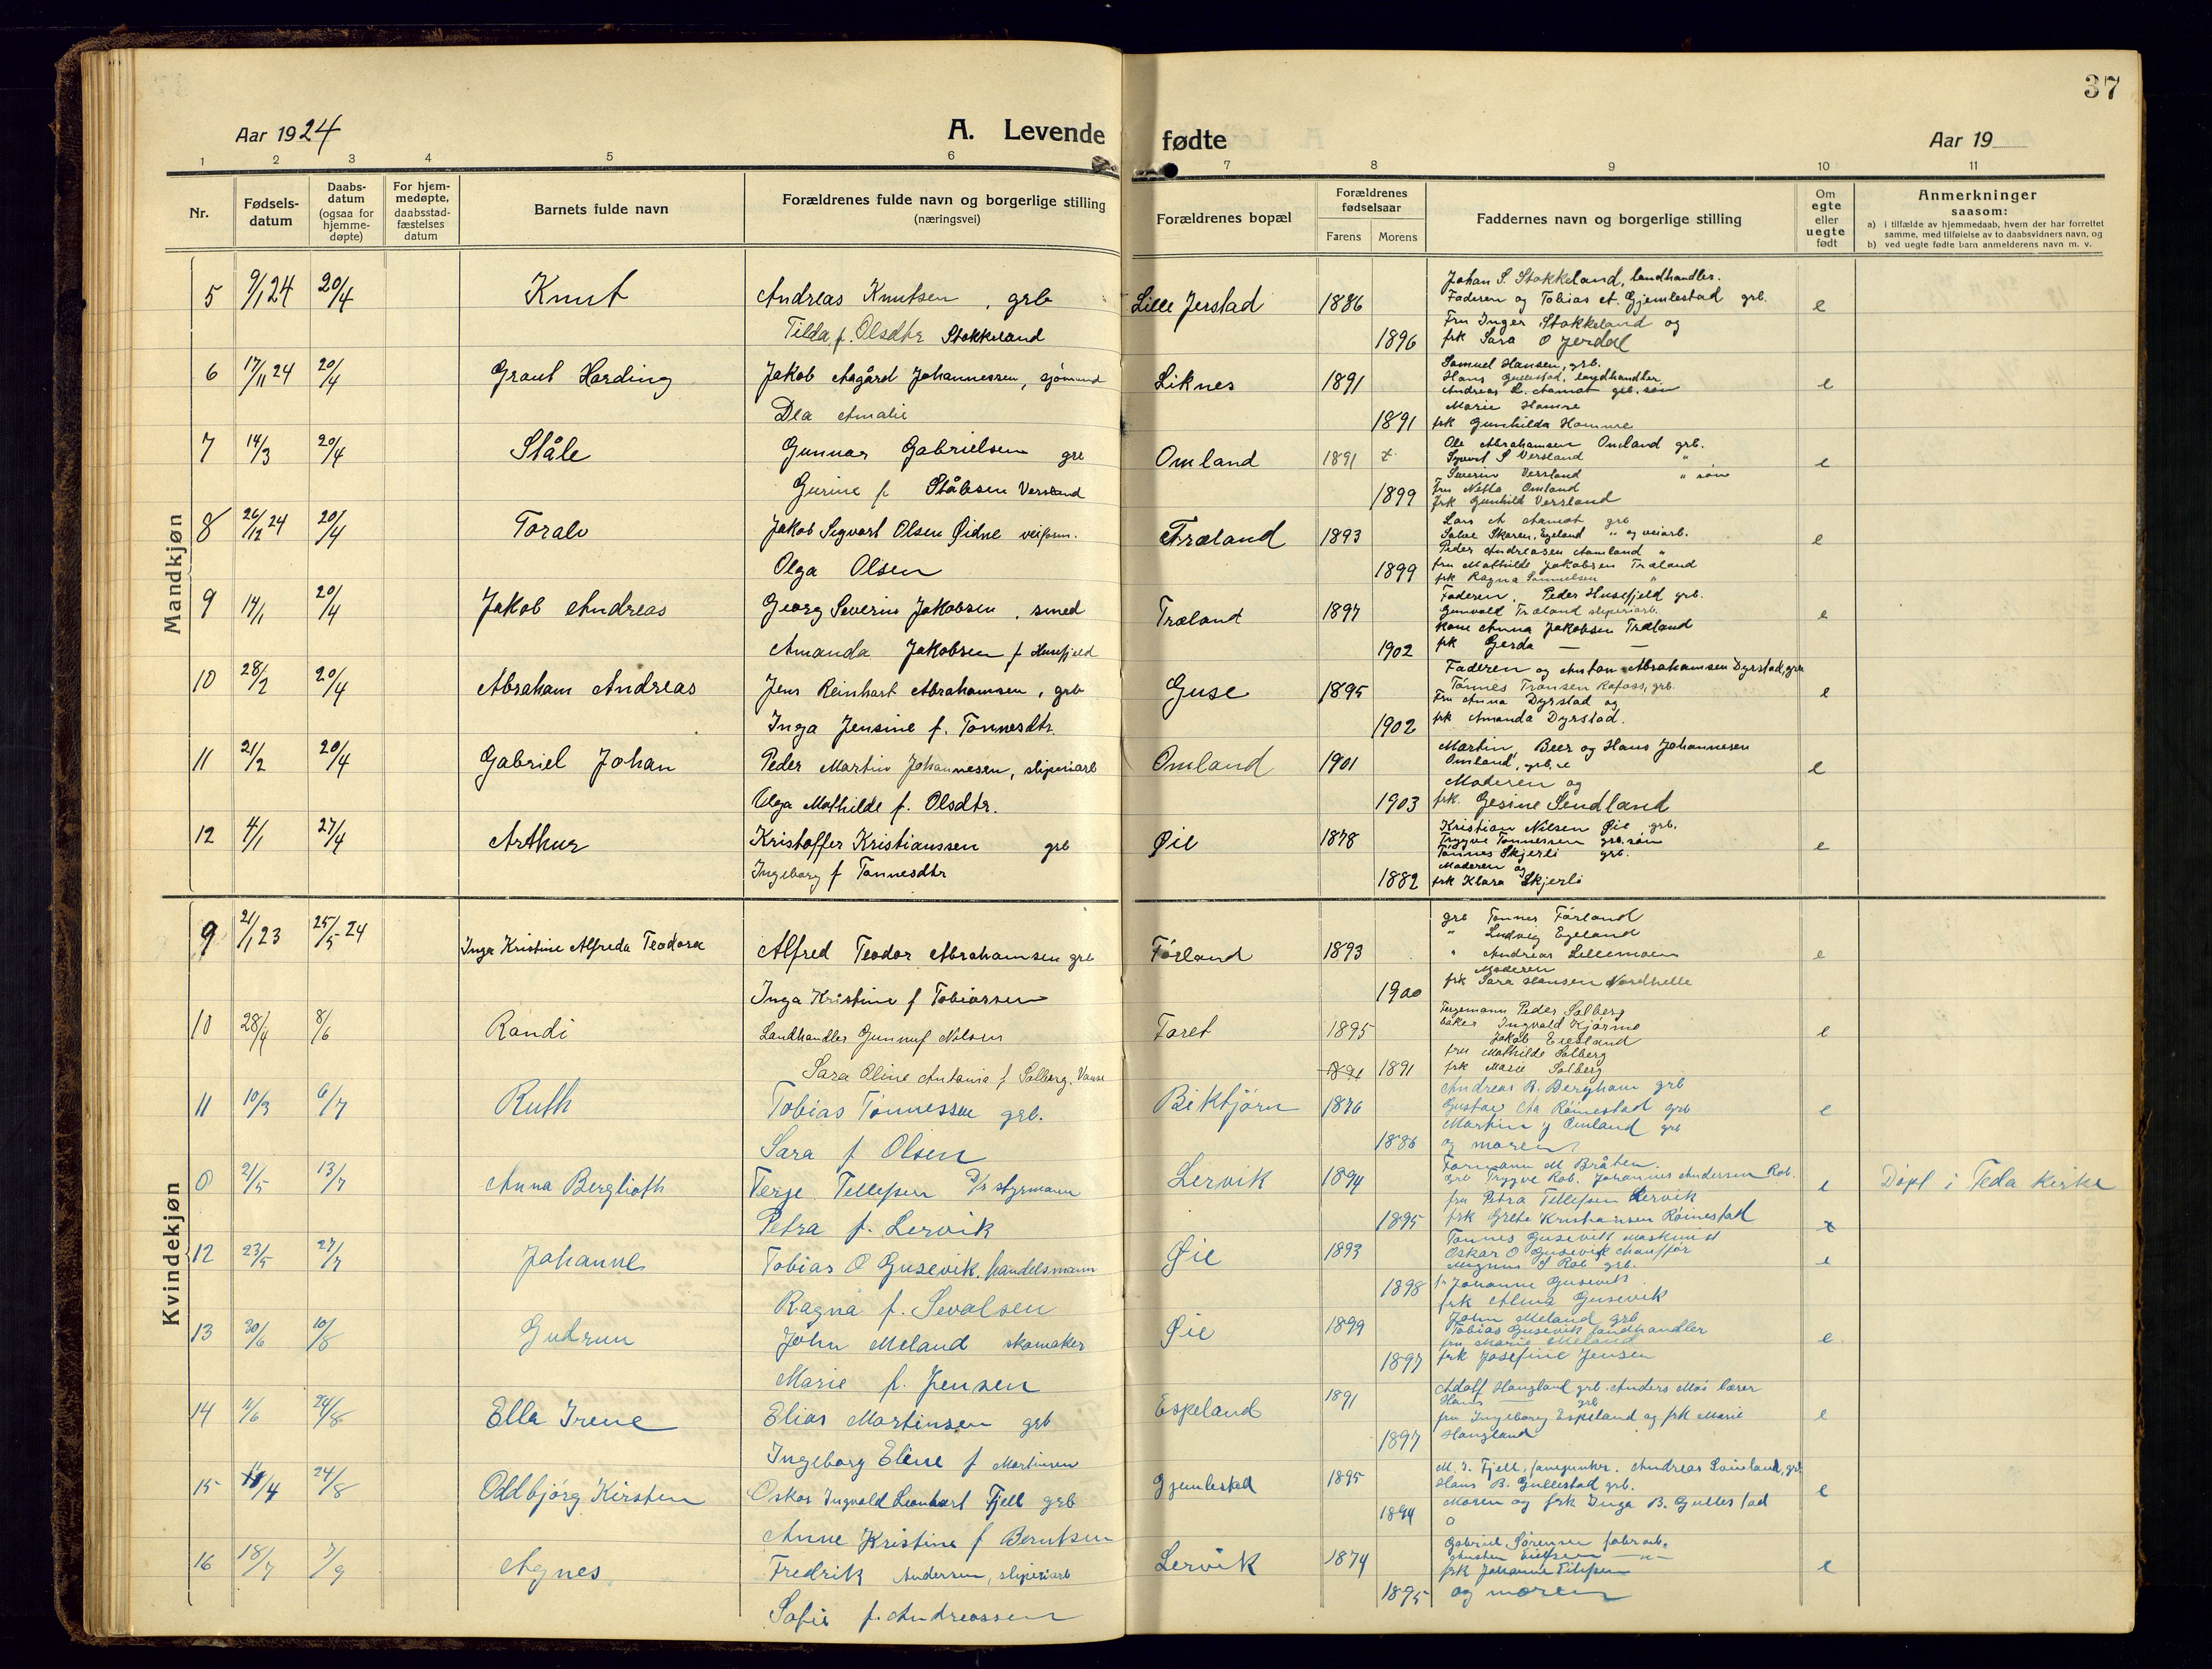 37
Aar 1924
A. Levende fødte
Aar 19
1 2 3 4 5 6 7 8 9 10 11
Nr.
Fødsels-datum
Daabs-datum (ogsaa for hjemme-døpte)
For hjem-medøpte, daabsstad-fæstelses datum
Barnets fulde navn
Forældrenes fulde navn og borgerlige stilling (næringsvei)
Forældrenes bopæl
Forældrenes fødselsaar
Farens Morens
Faddernes navn og borgerlige stilling
Om egte eller uegte født
Anmerkninger
saasom:
a) i tilfælde av hjemmedaab, hvem der har forrettet samme, med tilføielse av to daabsvidners navn, og
b) ved uegte fødte barn anmelderens navn m. v.
Mandkjøn
5 9/1 24 20/4 Knut Andreas Knutsen, grb Lille Jerstad 1886 Johan S. Stokkeland, landhandler. e
Faderen og Tobias et. Gjemlestad grb.
Tilda f. Olsdtr Stokkeland 1896 Fru Inger Stokkeland og
frk Sara O Jerdal
6 17/11 24 20/4 Graut Harding Jakob Aagård Johannessen, sjömand Liknes 1891 Samuel Hansen, grb. e
Hans Gullestad, landhandler
Andreas L. Aamot grb. søn
Dla Amalie 1891 Marie Hamre
frk Gunhilda Hamre
7 14/3 20/4 Ståle Gunnar Gabrielsen gr Omland 1891 Ole Abrahamsen Omland grb. e
S Versland "
Severin Versland " søn
Gurine f Stålesen Versland 1899 Fru Netta Omland
frk Gunhild Versland
8 26/12 24 20/4 Toralv Jakob Sigvart Olsen Øidne veiform. Træland 1893 Lars A Aamot grb e
Salve Skaren, Egeland " og veiarb.
Peder Andreasen Aamland "
Olga Olsen 1899 fru Mathilde Jakobsen Træland
frk Ragna Samuelsen "
9 14/1 20/4 Jakob Andreas Georg Severin Jakobsen, smed Træland 1897 Faderen, Peder Husefjeld grb. e
Gunvald Træland sliperiarb.
Amanda Jakobsen f Husefjeld 1902 kone Anna Jakobsen Træland
frk Gerda — —
10 28/2 20/4 Abraham Andreas Jens Reinhart Abrahamsen, grb Guse 1895 Faderen og Anton Abrahamsen Dyrstad, grb e
Tönnes Tronsen Rafoss, grb.
Inga Jensine f. Tönnesdtr. 1902 Fru Anna Dyrstad og
frk Amanda Dyrstad.
11 21/2 20/4 Gabriel Johan Peder Martin Johannesen, sliperiarb Omland 1901 Martin, Beer og Hans Johannesen e
Omland, grb.e
Olga Mathilde f. Olsdtr. 1903 Moderen og
frk. Gesine Sendland
12 4/1 27/4 Arthur Kristoffer Kristianssen grb Øie 1878 Kristian Nilsen Øie grb. e
Trygve Tönnessen grb. søn
Tönnes Skjerli grb.
Ingeborg f Tönnesdtr 1882 Moderen og
frk Klara Skjerli
Kvindekjøn
9 21/1 23 25/5 24 Inga Kristine Alfreda Teodora Alfred Teodor Abrahamsen grb Förland 1893 grb Tönnes Förland e
" Ludvig Egeland
" Andreas Lillemoen
Inga Kristine f Tobiassen 1900 Moderen
frk Sara Hansen Nordhelle
10 28/4 8/6 Randi Landhandler Gunnuf Nilsen Faret 1895 Peder Salberg e
baker Ingvald Kjörmo
Jakob Eiesland
Sara Oline Antonia f Salberg. Vanse 1891 fru Mathilde Salberg
frk Marie Salberg
11 10/3 6/7 Ruth Tobias Tönnessen grb. Biktjörn 1876 Andreas B. Bergham grb e
Gustav Aa Röinestad grb
Martin J Omland grb
Sara f Olsen 1886 og moren
0 21/5 13/7 Anna Berglioth Terje Tellefsen D/S styrmann Lervik 1894 Formann M Bråten. e Döpt i Feda kirke
grb Trygve Rob. Johannes Andersen Rob.
Petra f. Lervik 1895 fru Petra Tellefsen Lervik
frk Grete Kristiansen Röinestad
12 23/5 27/7 Johanne Tobias O Gusevik, handelsmann Øie 1893 Tönnes Gusevik maskinist e
Oskar O Gusevik chaufför
Magnus S Rob grb.
Ragna f. Sevalsen 1898 fr Johanne Gusevik
frk Alma Gusevik
13 30/6 10/8 Gudrun John Meland skomaker Øie 1899 John Meland grb e
Tobias Gusevik landhandler
Marie f. Jensen 1897 fru Marie Meland
frk Josefine Jensen
14 11/6 24/8 Ella Irene Elias Martinsen grb Espeland 1891 Adolf Haugland grb. Anders Moi lærer e
Hans — grb
Ingeborg Eline f Martinsen 1897 fru Ingeborg Espeland og frk Marie
Haugland
15 /4 24/8 Oddbjörg Kirsten Oskar Ingvald Leonhart Fjell grb Gjemlestad 1895 M. I. Fjell, fanejunker. Andreas, grb. e
Hans B. Gullestad grb.
Anne Kristine f Berntsen 1894 Moren og frk Inga B. Gullestad
16 18/7 7/9 Agnes Fredrik Andersen, sliperiarb Lervik 1874 Gabriel Sörensen fabrarb. e
— " —
Sofie f. Andreassen 1895 frk Johanne
og moren